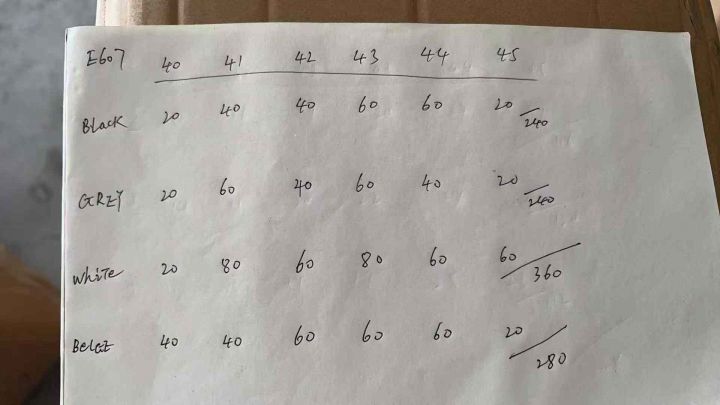 E607 40 41 42 43 44 45
Black 20 40 40 60 60 20 /240
GREY 20 60 40 60 40 20 /240
White 20 80 60 80 60 60 /360
BeigE 40 40 60 60 60 20 /280